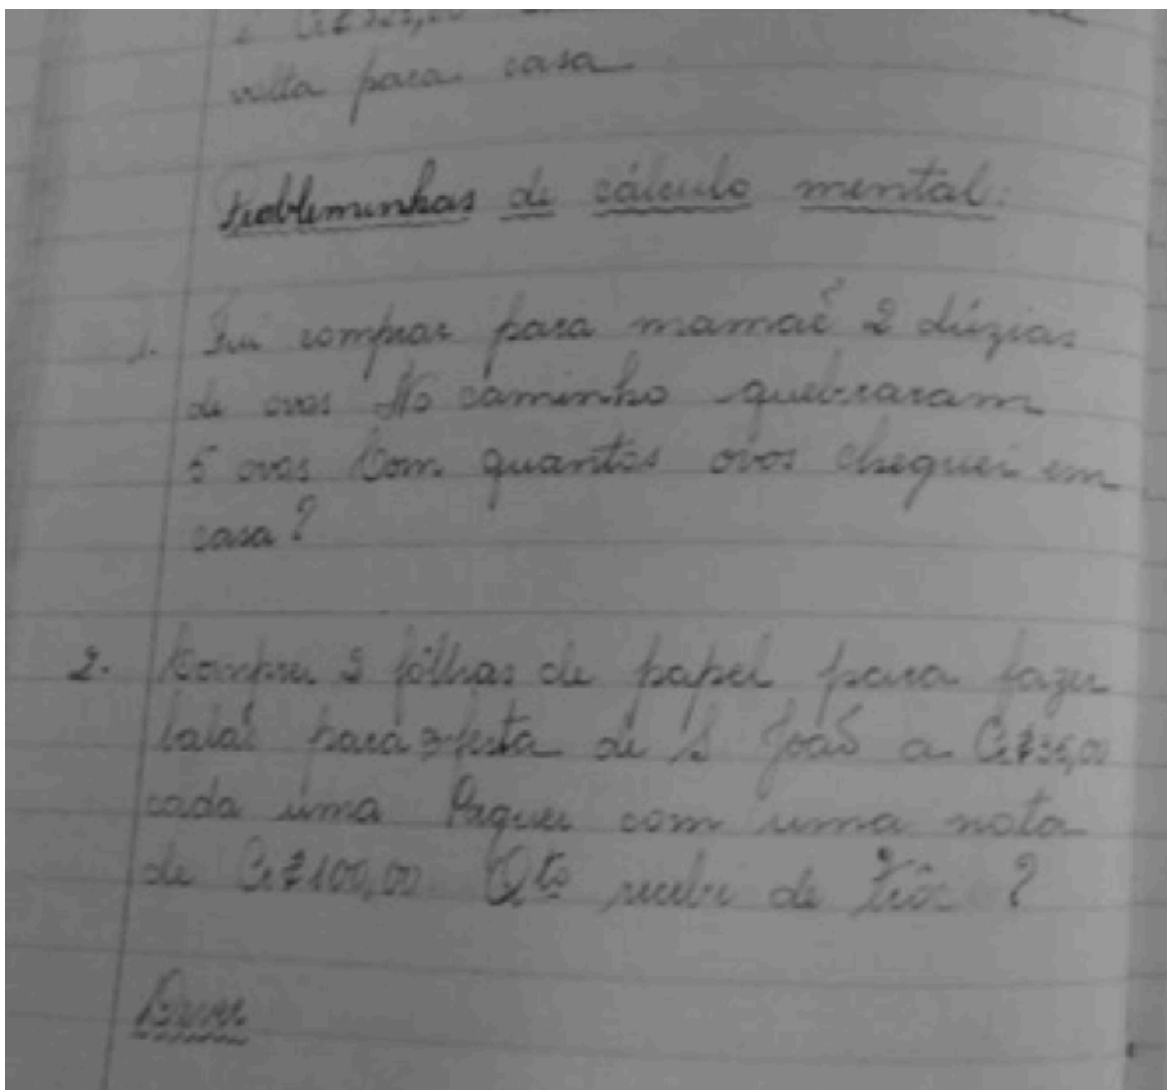 volta para casa
Probleminhas de cálculo mental:
1. Fui comprar para mamãe 2 dúzias
de ovos No caminho quebraram
5 ovos Com quantos ovos cheguei em
casa?
2. Comprei fôlhas de papel para fazer
balão para festa de S João a
cada uma Paguei com uma nota
de Cr$100,00 Qto recebi de trôco?